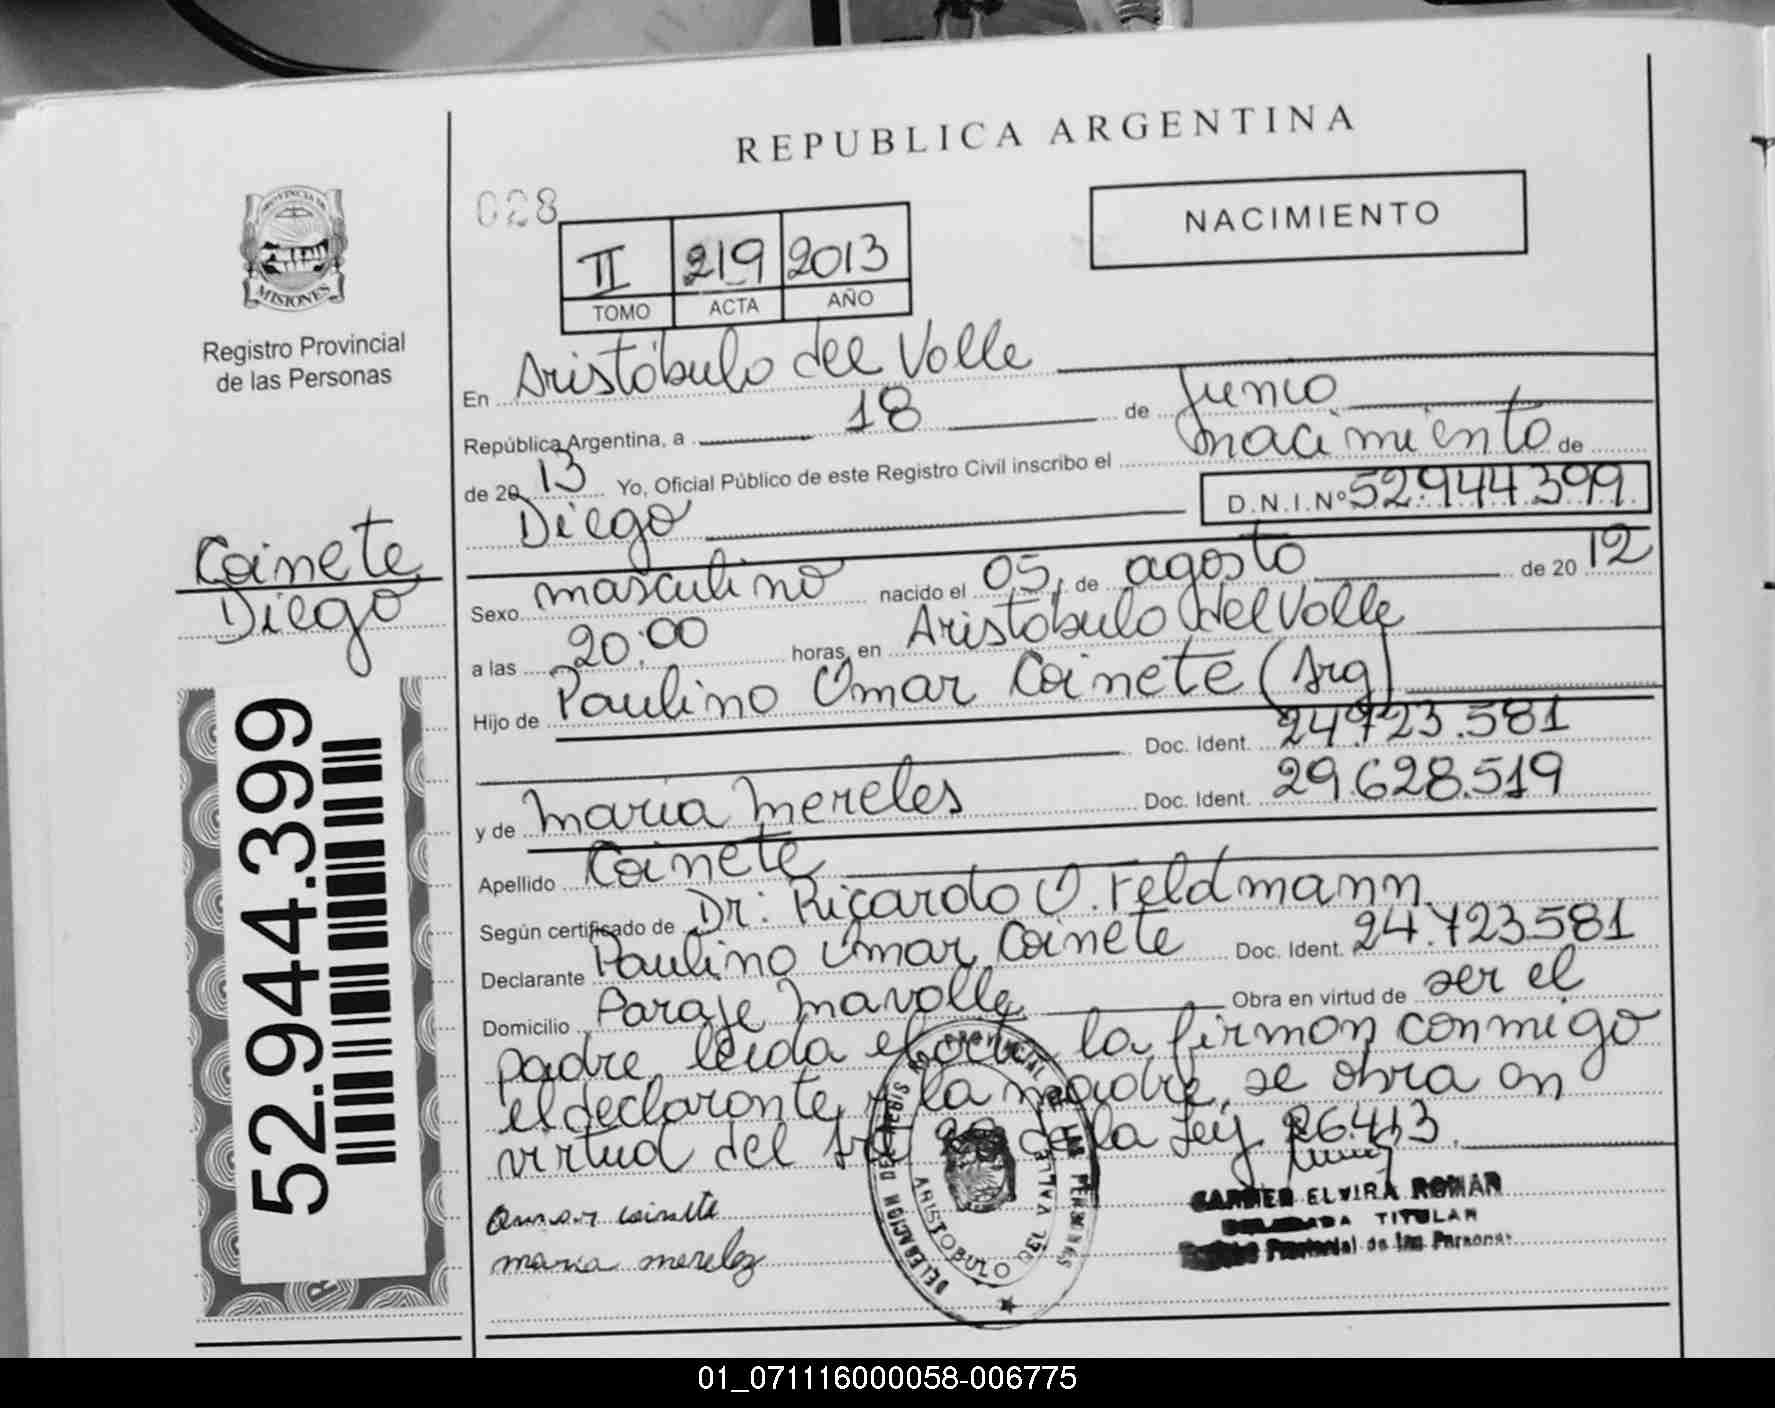 REPUBLICA ARGENTINA
028
NACIMIENTO
II 219 2013
TOMO ACTA AÑO
PROVINCIA DE
MISIONES
Registro Provincial
de las Personas
En Aristóbulo del Valle
República Argentina, a 18 de Junio
de 2013 Yo, Oficial Público de este Registro Civil inscribo el nacimiento de
Diego D.N.I.Nº 52.944.399
Coinete
Diego
Sexo masculino nacido el 05, de agosto de 2012
a las 20:00 horas, en Aristóbulo del Valle
Hijo de Paulino Omar Coinete (Arg)
Doc. Ident. 24.723.581
y de Maria Mereles Doc. Ident. 29.628.519
Apellido Coinete
Según certificado de Dr: Ricardo O. Feldmann
Declarante Paulino Omar Coinete Doc. Ident. 24.723.581
Domicilio Paraje Mavalle Obra en virtud de ser el
padre, leida el acta, la firman conmigo
el declarante y la madre, se obra en
virtud del de la Ley 26.413.
52.944.399
Omar coinete
maria merelez
ARISTOBULO DEL VALLE
CARMEN ELVIRA ROMAN
DELEGADA TITULAR
Registro Provincial de las Personas
01_071116000058-006775